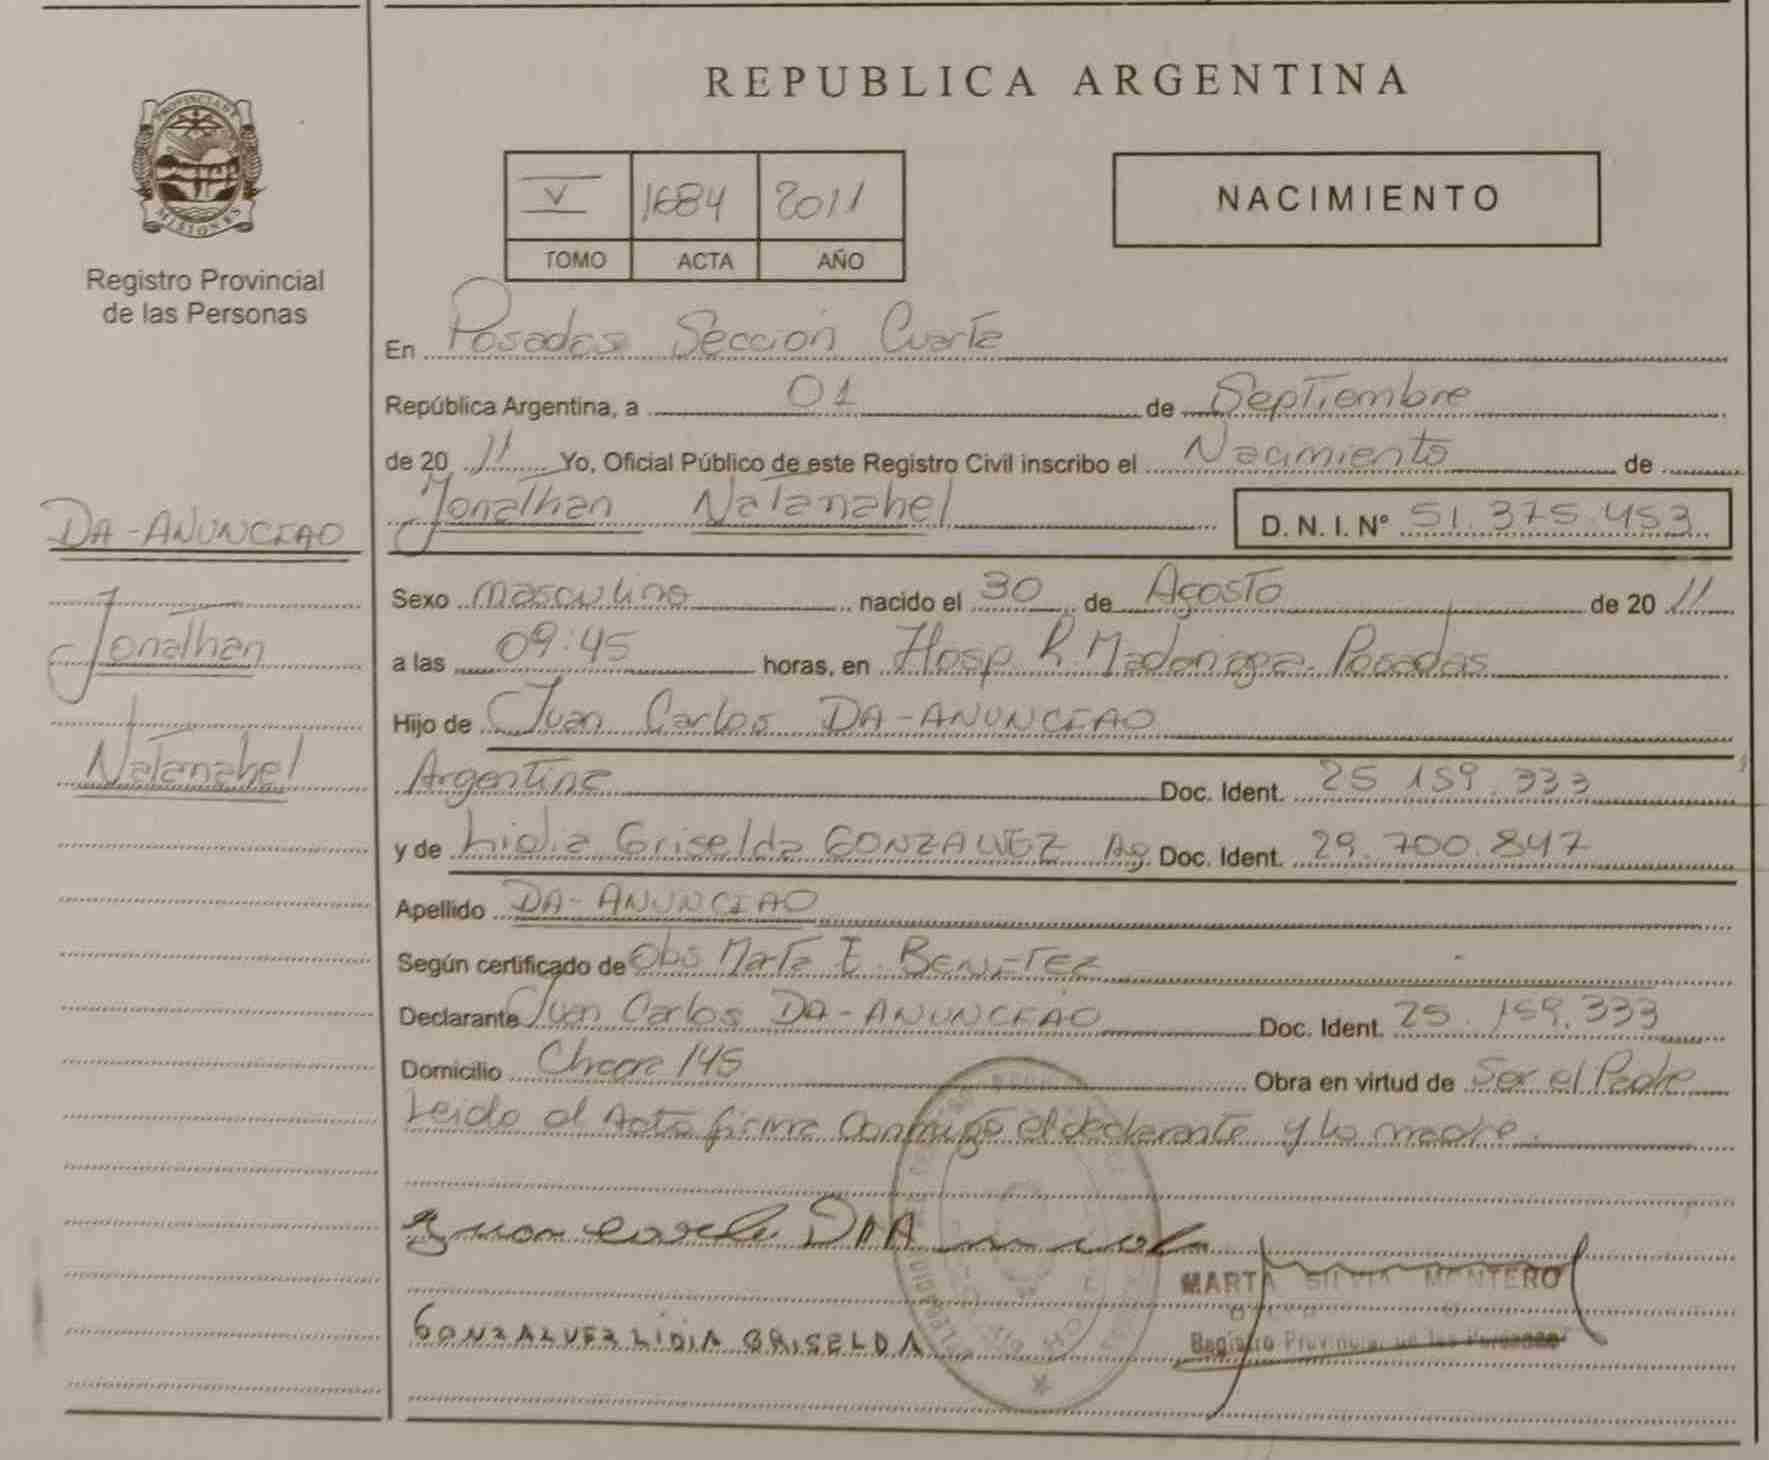 REPUBLICA ARGENTINA
PROVINCIA DE
MISIONES
Registro Provincial
de las Personas
V 1684 2011
TOMO ACTA AÑO
NACIMIENTO
En Posadas Sección Cuarta
República Argentina, a 01 de Septiembre
de 20 11 Yo, Oficial Público de este Registro Civil inscribo el Nacimiento de
Jonathan Natanahel D. N. I. Nº 51.375.453
DA-ANUNCIAO
Jonathan
Natanahel
Sexo masculino nacido el 30 de Agosto de 20 11
a las 09:45 horas, en Hosp R. Madariaga. Posadas
Hijo de Juan Carlos DA-ANUNCIAO
Argentina Doc. Ident. 25 159.333
y de Lidia Griselda GONZALVEZ Ag. Doc. Ident. 29.700.847
Apellido DA-ANUNCIAO
Según certificado de Obs Marta E. Benitez
Declarante Juan Carlos DA-ANUNCIAO Doc. Ident. 25.159.333
Domicilio Chacra 145 Obra en virtud de Ser el Padre
Leido el Acta firma conmigo el declarante y la madre.
MARTA SILVIA MONTERO
Registro Provincial de las Personas
GONZALVEZ LIDIA GRISELDA